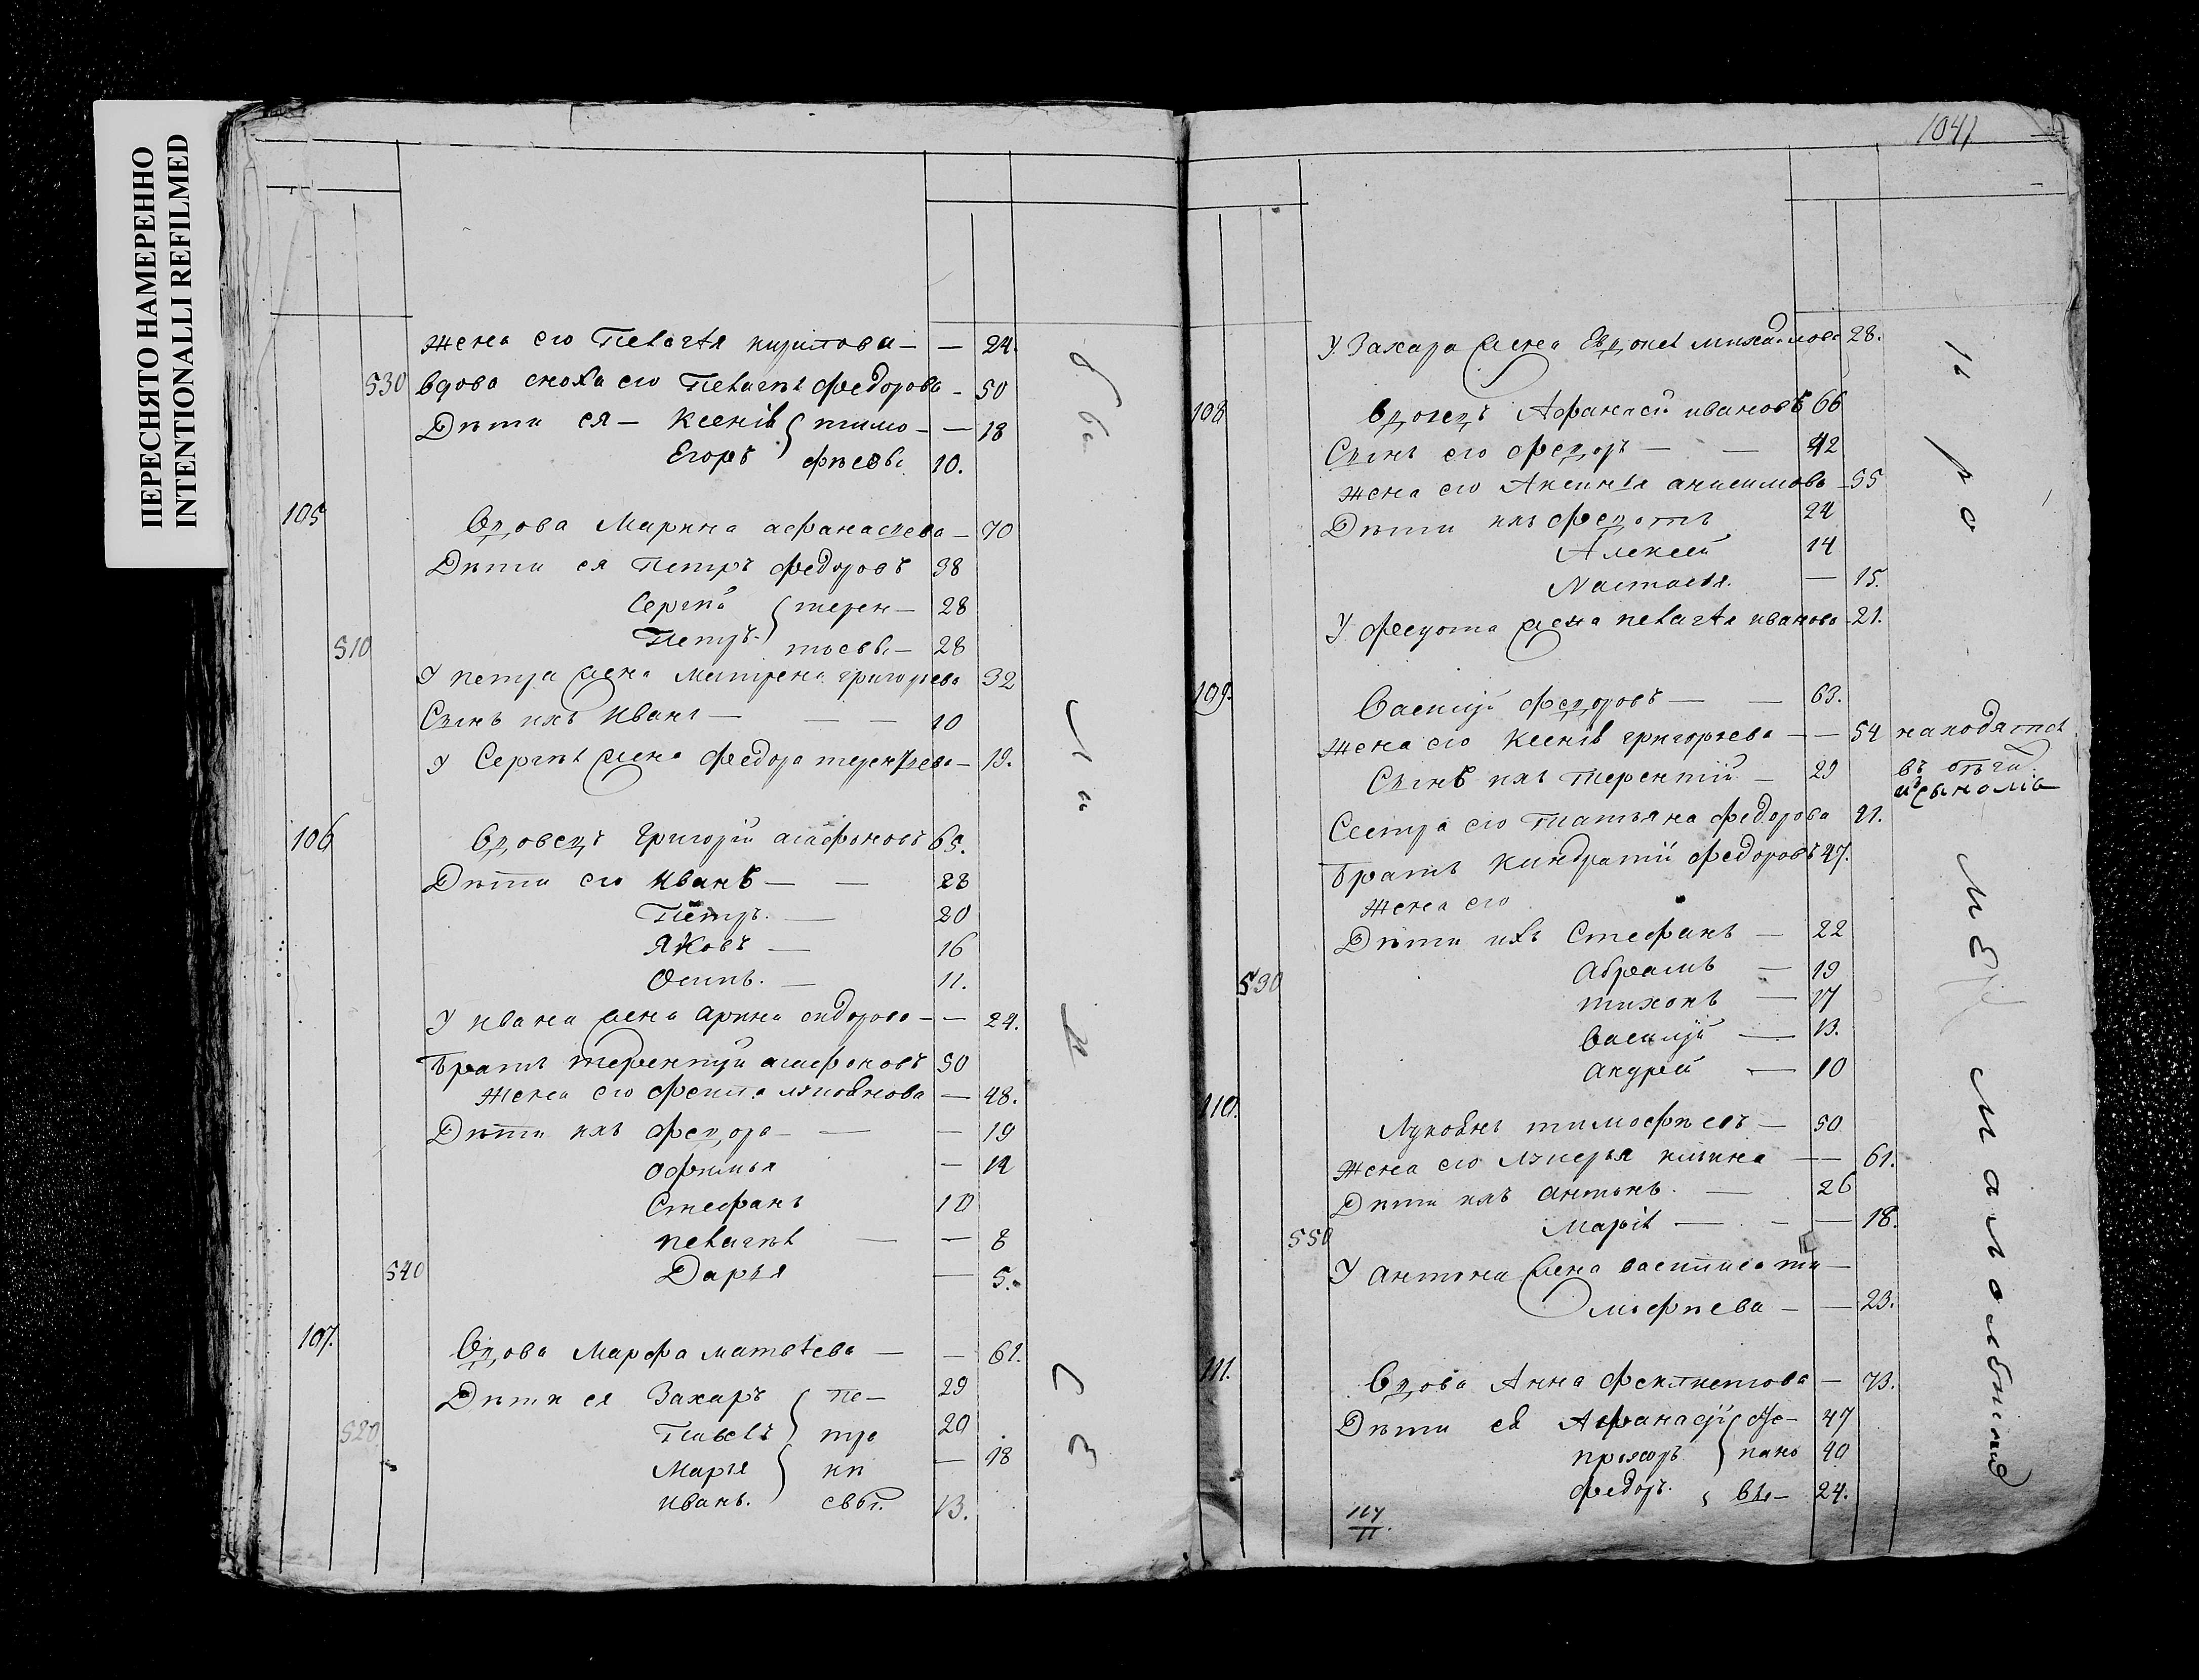 ПЕРЕСНЯТО НАМЕРЕННО
INTENTIONALLI REFILMED
жена его Пелагѣя кирилова — — 24.
530 вдова сноха его Пелагѣя федорова — 50
Дѣти ея — Ксенія тимо — — 18
Егоръ фѣевы 10.
105
Вдова Марина афанасьева — 70
Дѣти ея Петръ федоровъ 38
Сергѣй терен — 28
510 Петръ тьевы — 28
У петра жена Матрена григорьева 32
Сынъ ихъ Иванъ — — — 10
У Сергѣя жена федора терентьева — 19.
106 Вдовецъ Григорій агафоновъ 65.
Дѣти его Иванъ — — 28
Петръ. — 20
Яковъ — 16
Осипъ. — 11.
У ивана жена арина — — 24.
Братъ терентій агафоновъ 50
жена его фекла лукоянова — 48.
Дѣти ихъ федора — — — 19
офимья — 14
Стефанъ 10
пелагѣя — — 8
540 Дарья — 5.
107. Вдова Марфа матвѣева — — 61.
Дѣти ея Захаръ пе — 29
520 Павелъ тро 20
Марья ни — 18
иванъ. евы. 13.
обы
ли
и
съ
1041
У Захара жена Евдокея михайлова 28.
108 Вдовецъ Афанасей ивановъ 66
Сынъ его федоръ — — 42
жена его Аксинья анисимова 55
Дѣти ихъ федотъ 24
Алексей 14
Настасья. — 15.
У федота жена пелагѣя иванова 21.
109. Василій федоровъ — — 63.
жена его Ксенія григорьева — — 54 находятся
Сынъ ихъ терентій — 29 въ бѣги
и съ сыномъ
Сестра его Татьяна федорова 21.
Братъ Кондратій федоровъ 47.
жена его
Дѣти ихъ Стефанъ — 22
530 Абрамъ — 19
тихонъ — 17
Василій — 13.
андрей — 10
110. Лукоянъ тимофѣевъ — 50
жена его лукерья ильина — — 61.
Дѣти ихъ антонъ. — 26
550 Марія — — — 18.
У антона жена василиса ти —
мофѣева — — 23.
111. Вдова Анна — 73.
Дѣти ея Афанасій сте — 47
прохоръ пано 40
федоръ. вы — 24.
про
мец
маломѣннид